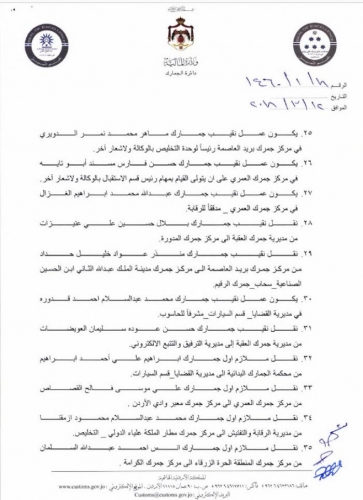 وزارة المالية
دائرة الجمارك
الرقم
التاريخ
الموافق
٢٥. يكون عمل نقيب جمارك ماهر محمد نمر الدويري
في مركز جمرك بريد العاصمة رئيساً لوحدة التخليص بالوكالة ولاشعار آخر.
٢٦. يكون عمل نقيب جمارك حسن فارس مسند أبو تايه
في مركز جمرك العمري على ان يتولى القيام بمهام رئيس قسم الاستقبال بالوكالة ولاشعار آخر.
٢٧. يكون عمل نقيب جمارك عبدالله محمد ابراهيم الغزال
في مركز جمرك العمري _ مدققاً للرقابة.
٢٨. نقل نقيب جمارك بلال حسين علي عنيزات
من مديرية جمرك العقبة الى مركز جمرك المدورة.
٢٩. نقل نقيب جمارك منذر عواد خليل حداد
من مركز جمرك بريد العاصمة الى مركز جمرك مدينة الملك عبدالله الثاني ابن الحسين
الصناعية_سحاب_جمرك الرقيم.
٣٠. يكون عمل نقيب جمارك محمد عبدالسلام احمد قدوره
في مديرية القضايا_ قسم السيارات_ مشرفاً للحاسوب.
٣١. نقل نقيب جمارك حسن عوده سليمان العويضات
من مديرية جمرك العقبة إلى مديرية الترفيق والتتبع الالكتروني.
٣٢. نقل ملازم اول جمارك ابراهيم علي أحمد ابراهيم
من محكمة الجمارك البدائية الى مديرية القضايا_قسم السيارات.
٣٣. نقل ملازم اول جمارك علي موسى فالح القصاص
من مركز جمرك العمري الى مركز جمرك معبر وادي الأردن.
٣٤. نقل ملازم اول جمارك محمد عبدالسلام محمود ازمقنا
من مديرية الرقابة والتفتيش الى مركز جمرك مطار الملكة علياء الدولي _ التخليص.
٣٥. نقل ملازم اول جمارك
من مركز جمرك المنطقة الحرة الزرقاء الى مركز جمرك الكرامة.
المملكة الأردنية الهاشمية
www.customs.gov.jo
Customs@customs.gov.jo